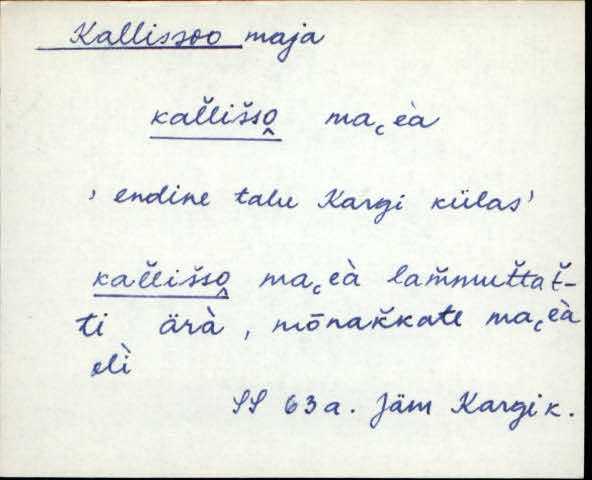 Kallissoo maja
kal̆l̆iššo̭ ma꜀eà
, endine talu Kargi külas'
kal̆l̆iššo̭ ma꜀eà lam̆mut̆tat̆-
ti ärà, mōnak̆kate ma꜀eà
elì
SS 63a. Jäm Kargi k.